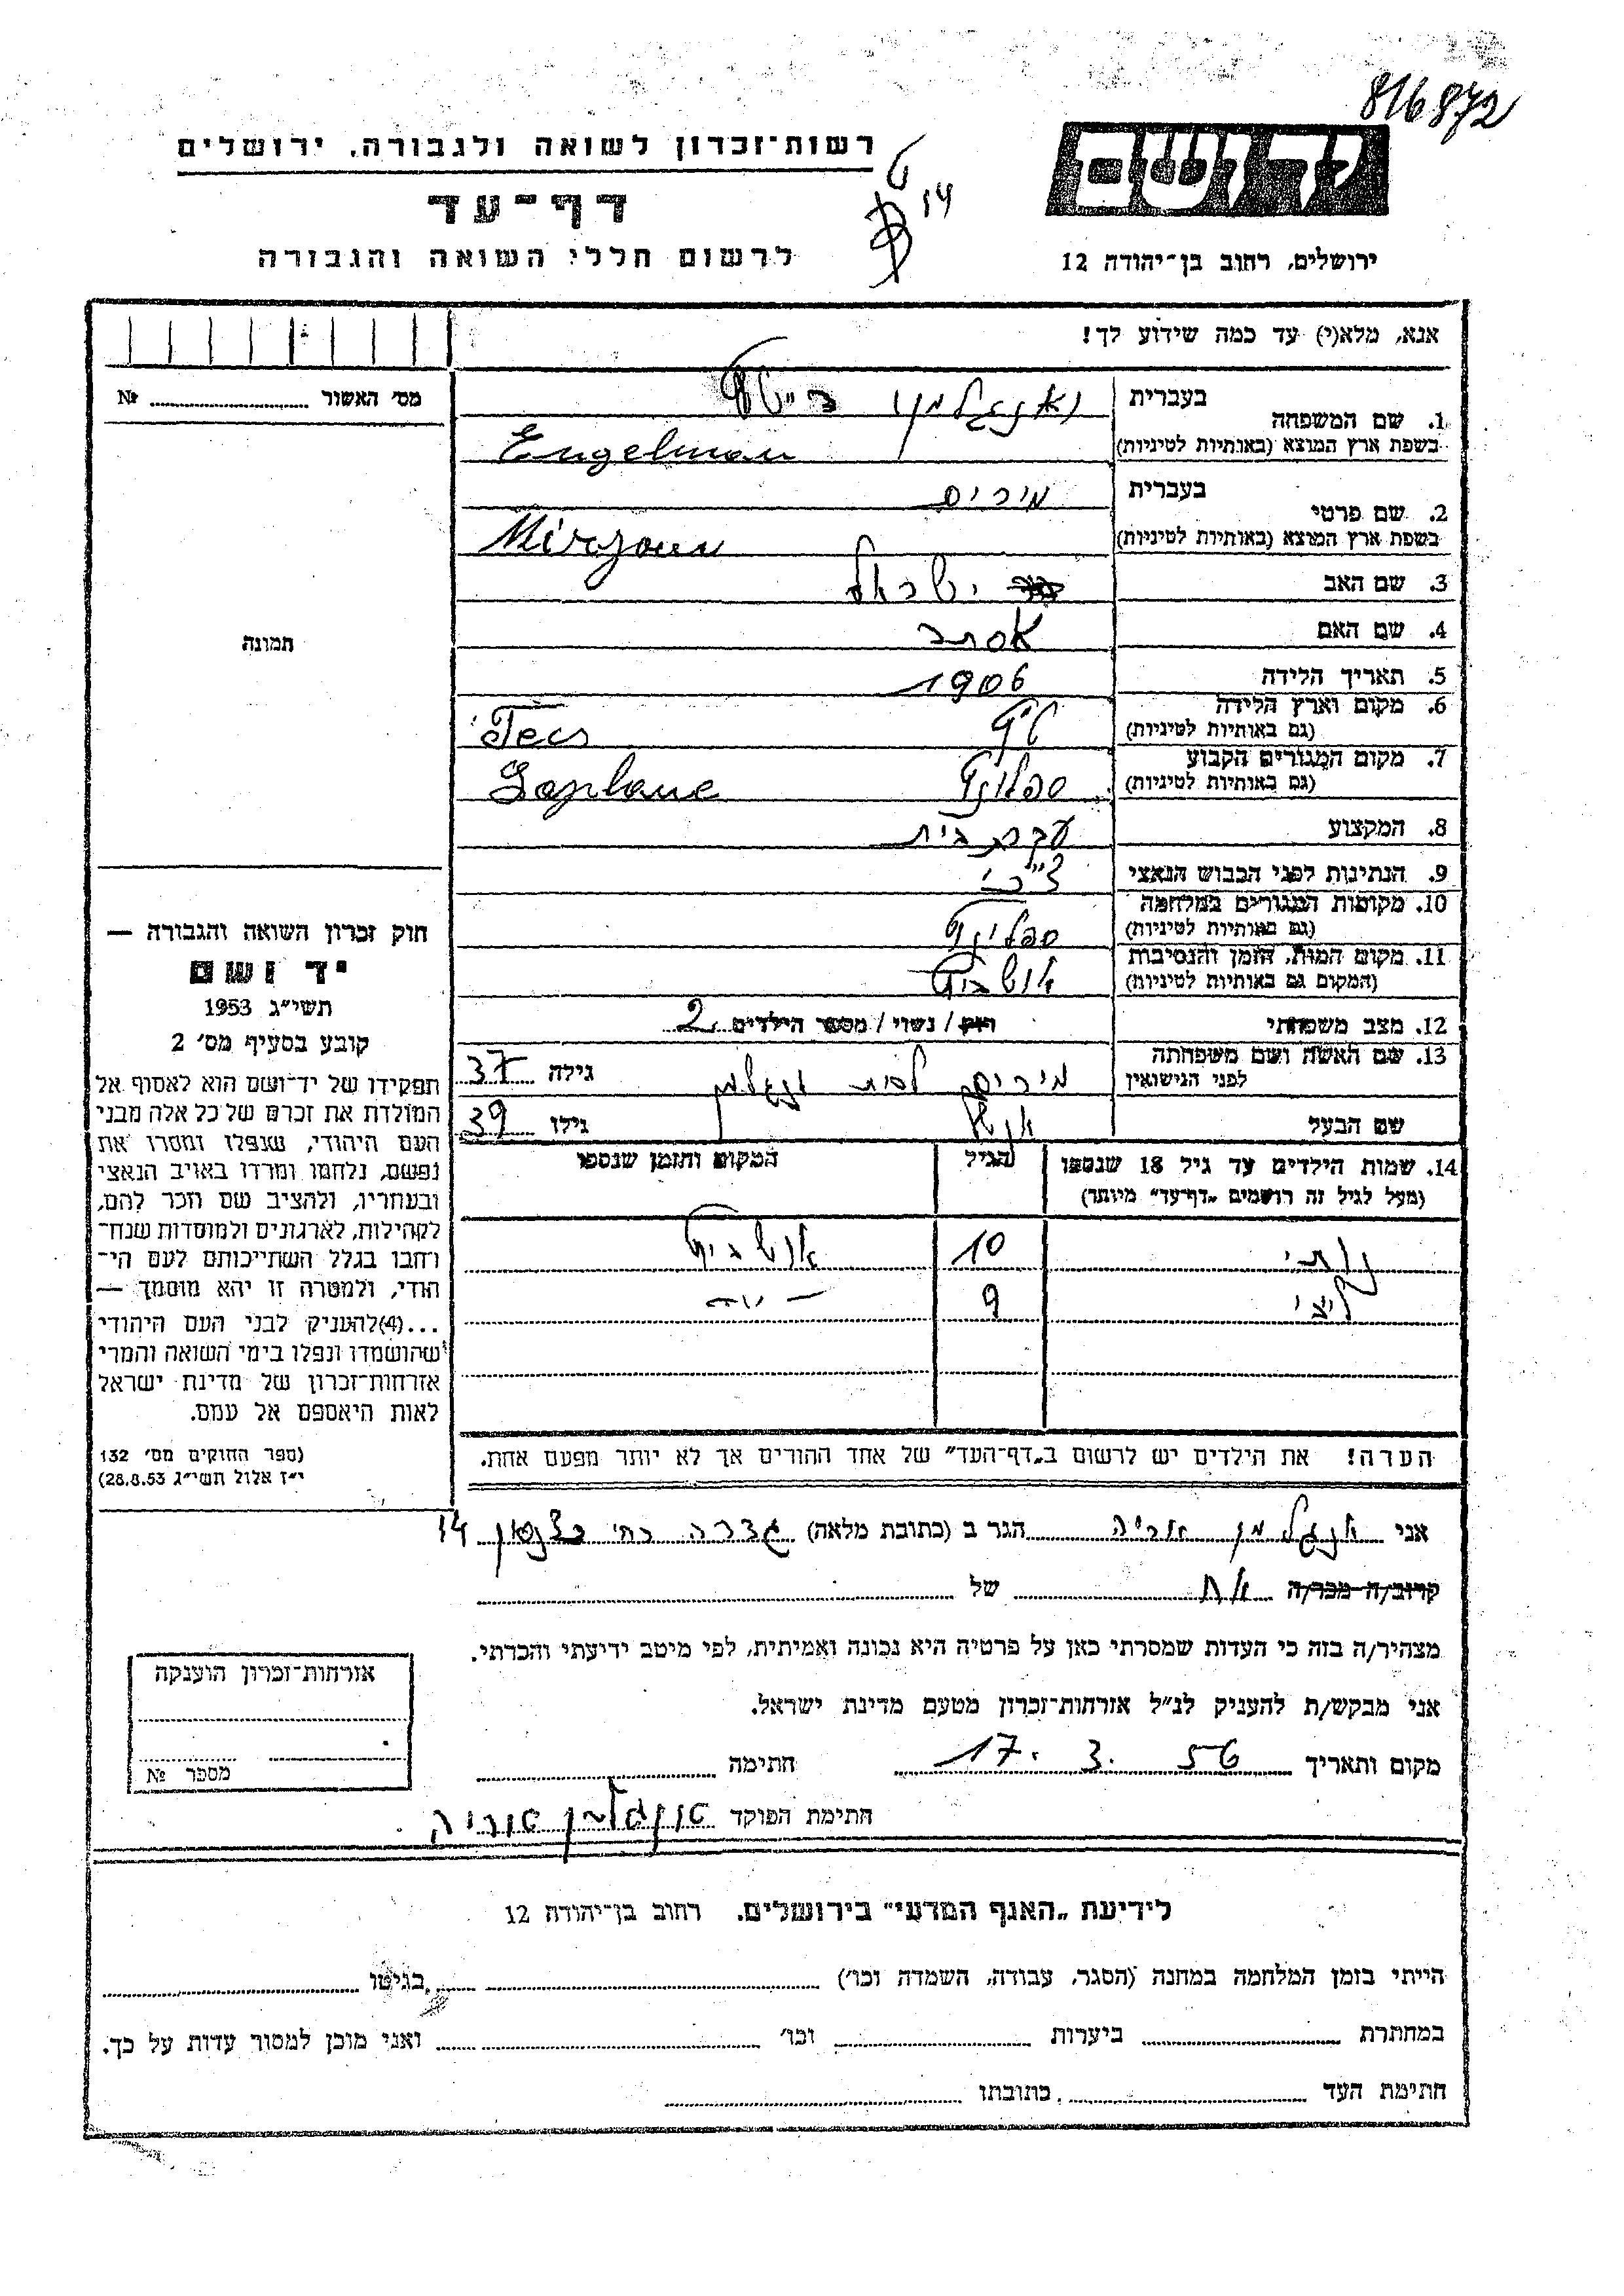 816872
רשות־זכרון לשואה ולגבורה, ירושלים
דף־עד
לרשום חללי השואה והגבורה
14
יד ושם
ירושלים, רחוב בן־יהודה 12
אנא, מלא(י) עד כמה שידוע לך!
מס׳ האשור № 
1. שם המשפחה
בעברית אנגלמן
בשפת ארץ המוצא (באותיות לטיניות) Engelman
2. שם פרטי
בעברית מירים
בשפת ארץ המוצא (באותיות לטיניות)
3. שם האב ישראל
4. שם האם אסתר
5. תאריך הלידה 1906
6. מקום וארץ הלידה
(גם באותיות לטיניות) Tecs
7. מקום המגורים הקבוע
(גם באותיות לטיניות)
8. המקצוע עקרת בית
9. הנתינות לפני הכבוש הנאצי
10. מקומות המגורים במלחמה
(גם באותיות לטיניות)
11. מקום המות, הזמן והנסיבות
(המקום גם באותיות לטיניות) אושביץ
12. מצב משפחתי רוק / נשוי / מספר הילדים 2
13. שם האשה ושם משפחתה
לפני הנישואין מירים לבית אנגלמן גילה 37
שם הבעל גילו 39
14. שמות הילדים עד גיל 18 שנספו
(מעל לגיל זה רושמים „דף־עד״ מיוחד)
הגיל
המקום והזמן שנספו
10 אושביץ
9
הערה! את הילדים יש לרשום ב„דף־העד״ של אחד ההורים אך לא יותר מפעם אחת.
תמונה
חוק זכרון השואה והגבורה —
יד ושם
תשי״ג 1953
קובע בסעיף מס׳ 2
תפקידו של יד־ושם הוא לאסוף אל
המולדת את זכרם של כל אלה מבני
העם היהודי, שנפלו ומסרו את
נפשם, נלחמו ומרדו באויב הנאצי
ובעוזריו, ולהציב שם וזכר להם,
לקהילות, לארגונים ולמוסדות שנח־
רחבו בגלל השתייכותם לעם הי־
הודי, ולמטרה זו יהא מוסמך —
...(4)להעניק לבני העם היהודי
שהושמדו ונפלו בימי השואה והמרי
אזרחות־זכרון של מדינת ישראל
לאות היאספם אל עמם.
(ספר החוקים מס׳ 132
י״ז אלול תשי״ג 28.8.53)
אני אנגלמן אריה הגר ב (כתובת מלאה) גדרה 14
קרוב/ה מכר/ה אח של
מצהיר/ה בזה כי העדות שמסרתי כאן על פרטיה היא נכונה ואמיתית, לפי מיטב ידיעתי והכרתי.
אני מבקש/ת להעניק לנ״ל אזרחות־זכרון מטעם מדינת ישראל.
מקום ותאריך 17. 3. 56 חתימה
חתימת הפוקד
אזרחות־זכרון הוענקה
מספר №
לידיעת „האגף המדעי״ בירושלים, רחוב בן־יהודה 12
הייתי בזמן המלחמה במחנה (הסגר, עבודה, השמדה וכו׳) בגיטו
במחתרת ביערות וכו׳ ואני מוכן למסור עדות על כך.
חתימת העד כתובתו